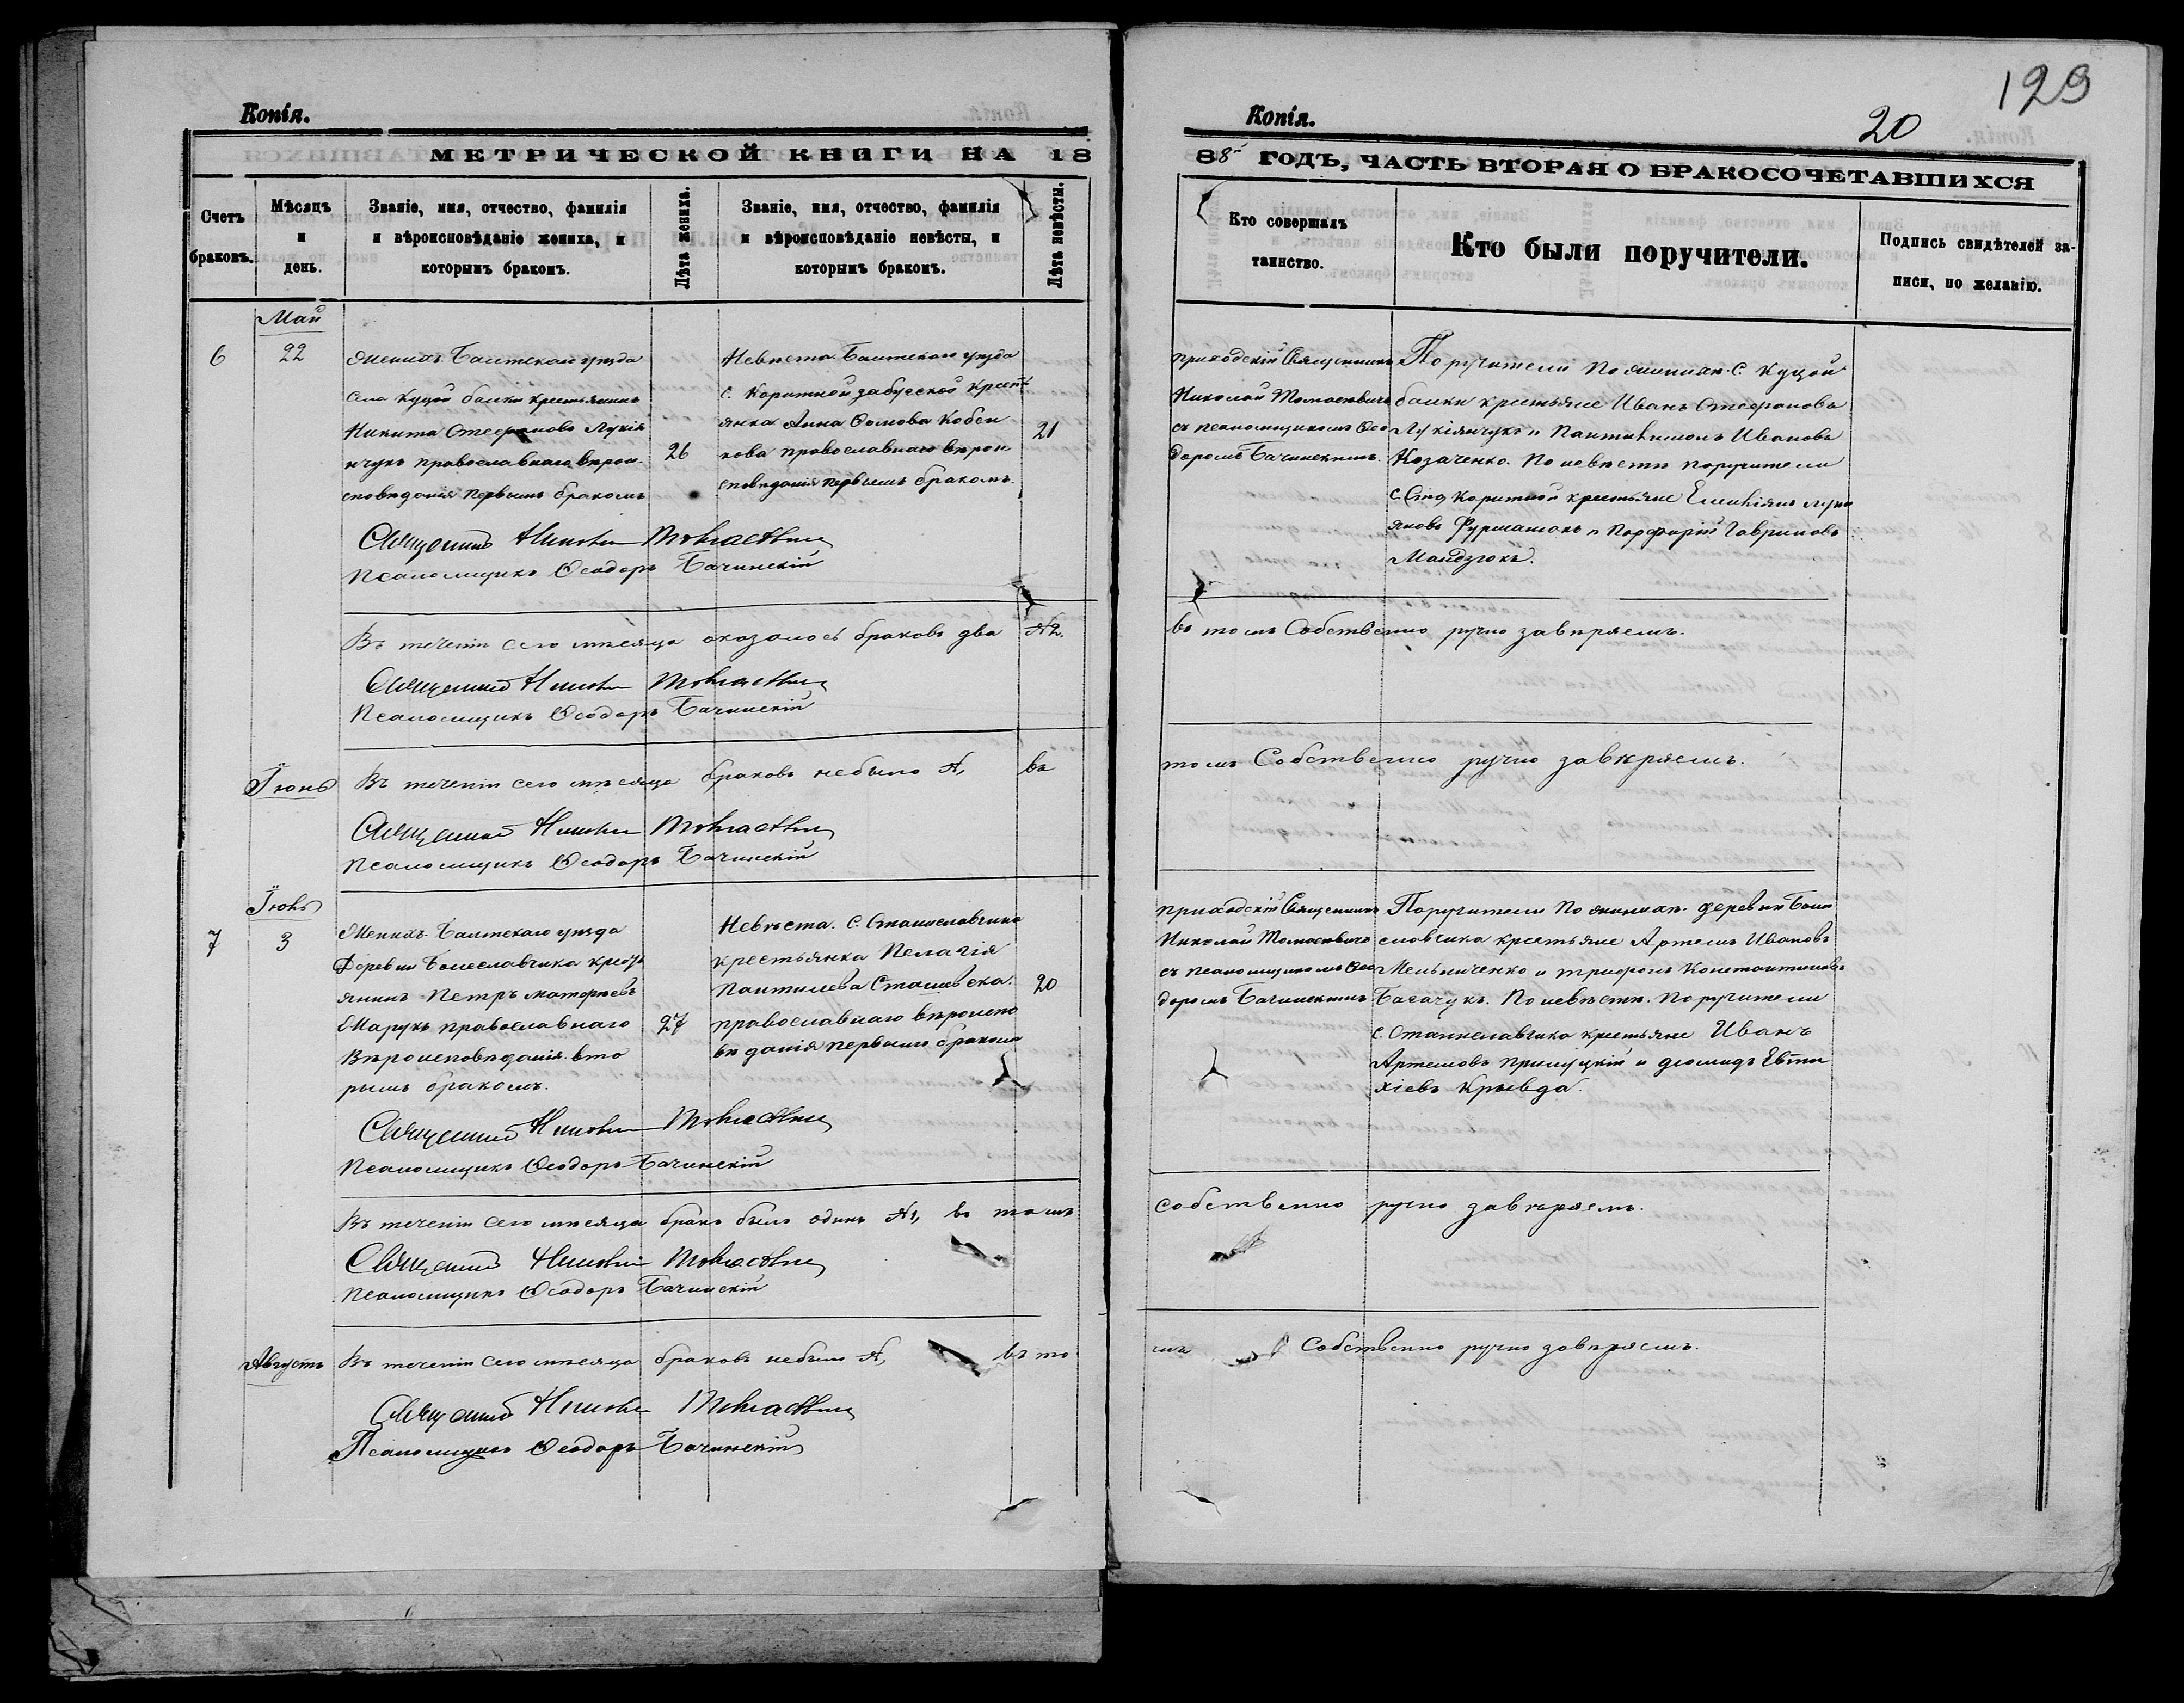 Копія.
МЕТРИЧЕСКОЙ КНИГИ НА 18
Счетъ браковъ.
Мѣсяцъ и день.
Званіе, имя, отчество, фамилія и вѣроисповѣданіе жениха, и которымъ бракомъ.
Лѣта жениха.
Званіе, имя, отчество, фамилія и вѣроисповѣданіе невѣсты, и которымъ бракомъ.
Лѣта невѣсты.
Май
6
22
Женихъ Балтскаго уѣзда
села Куцой балки крестьянинъ
Никита Стефановъ Лукія
нчукъ православнаго вѣрои
сповѣданія первымъ бракомъ
26
Невѣста Балтскаго уѣзда
с. Коритной забуской крестъ
янка Анна Фомова Кобен
кова православнаго вѣрои
сповѣданія первымъ бракомъ.
21
Священникъ Николай
Псаломщикъ Ѳеодоръ Бачинскій
Въ теченіи сего мѣсяца оказалось браковъ два №2.
Священникъ Николай
Псаломщикъ Ѳеодоръ Бачинскій
Іюнь
Въ теченіи сего мѣсяца браковъ небыло №, въ
Священникъ Николай
Псаломщикъ Ѳеодоръ Бачинскій
Іюль
7
3
Женихъ Балтскаго уѣзда
Деревни Болеславчика крестъ
янинъ Петръ Матфѣевъ
Марукъ православнаго
Вѣроисповѣданія вто
рымъ бракомъ.
27
Невѣста. С. Станиславчика
крестьянка Пелагія
Пантилева Сташевска.
православнаго вѣроиспо
вѣданія первымъ бракомъ
20
Священникъ Николай
Псаломщикъ Ѳеодоръ Бачинскій
Въ теченіи сего мѣсяца бракъ былъ одинъ №1, въ томъ
Священникъ Николай
Псаломщикъ Ѳеодоръ Бачинскій
Августъ
Въ теченіи сего мѣсяца браковъ небыло №, въ то
Священникъ Николай
Псаломщикъ Ѳеодоръ Бачинскій
129
20
Копія.
88 ГОДЪ, ЧАСТЬ ВТОРАЯ О БРАКОСОЧЕТАВШИХСЯ
Кто совершалъ таинство.
Кто были поручители.
Подпись свидѣтелей записи, по желанію.
приходскій Священникъ
Николай
съ псаломщикомъ Ѳео
доромъ Бачинскимъ.
Поручители По женихѣ. С. Куцой
балки крестьяне Иванъ Стефановъ
Лукіянчукъ и Пантилимонъ Ивановъ
Козаченко. По невѣстѣ поручители
с. Коритной крестьяне Емелiянъ Луки
яновъ Фурманюкъ и Порфирій Гавриловъ
Мандзюкъ.
въ томъ Собственно ручно завѣряемъ.
томъ Собственно ручно завѣряемъ.
приходскій Священникъ
Николай
съ псаломщикомъ Ѳео
доромъ Бачинскимъ
Поручители По женихѣ. деревни Боли
славчика крестьяне Артемъ Ивановъ
Мельниченко и Трифонъ Константиновъ
Басачукъ. По невѣстѣ. Поручители
с. Станиславчика крестьяне Иванъ
Артемовъ Прилуцкій и Діомидъ Евти
хіевъ Крывда.
собственно ручно завѣряемъ.
мъ Собственно ручно завѣряемъ.